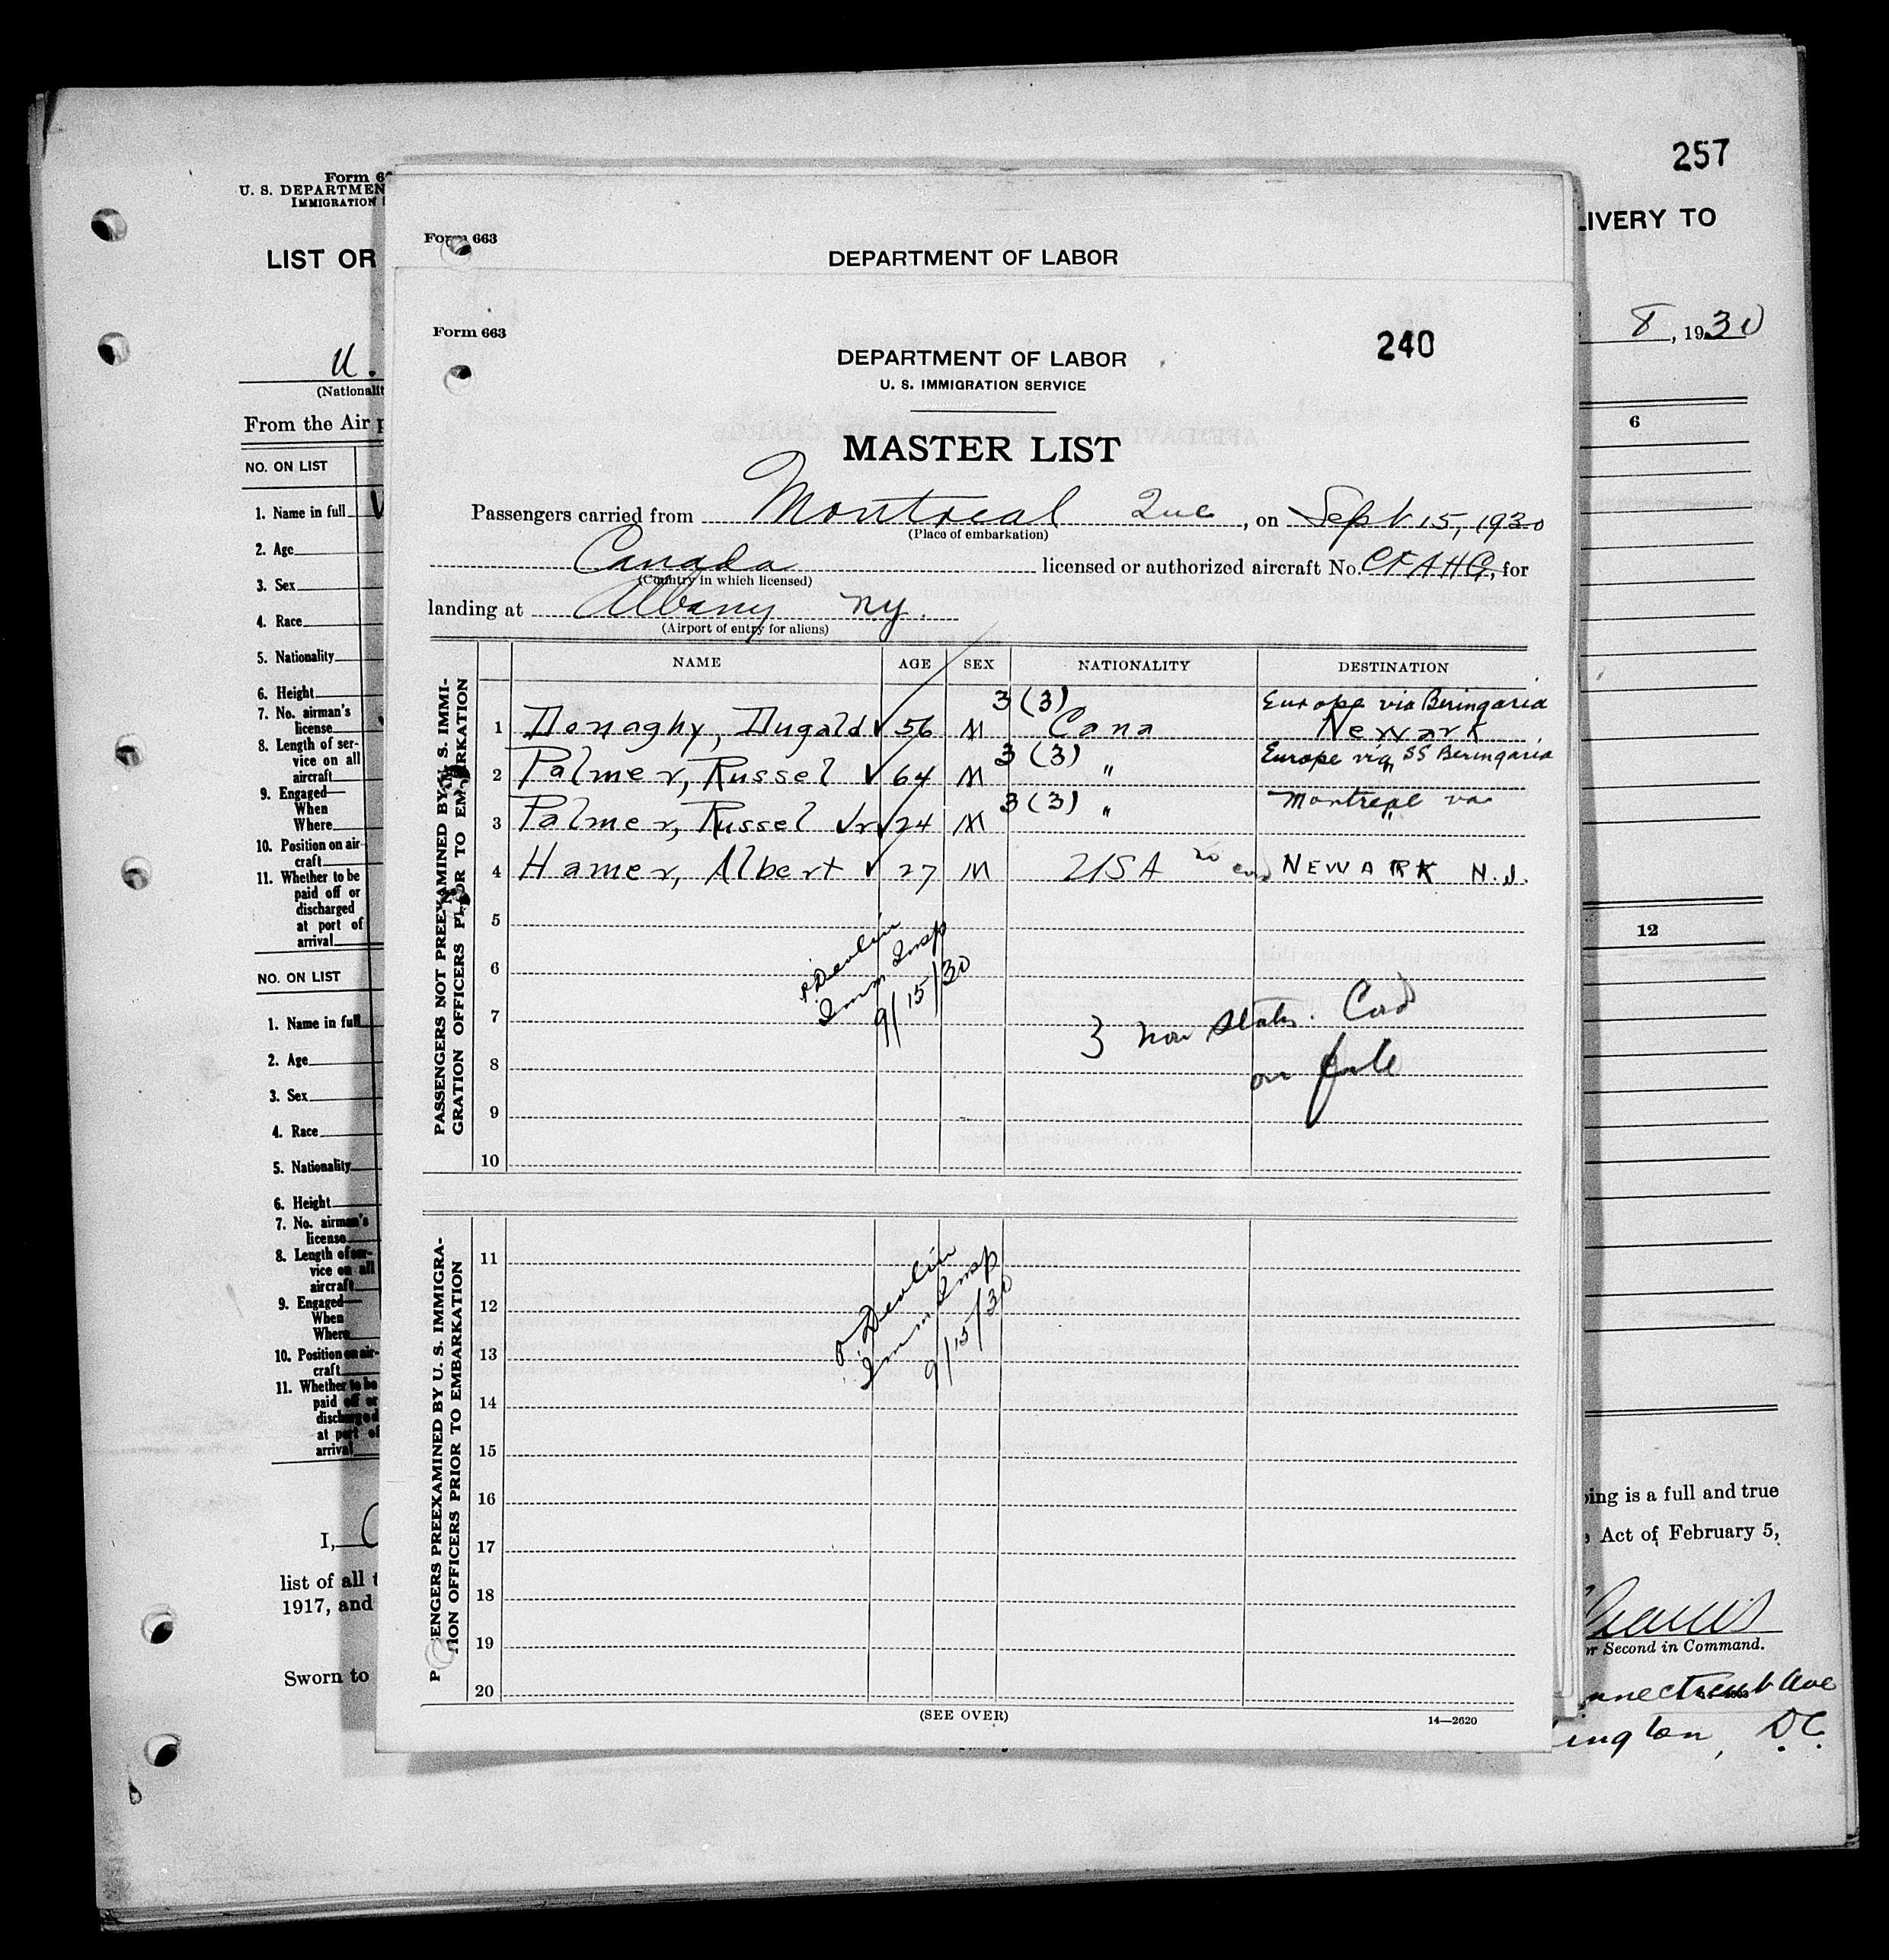 257
Form 66
U. S. DEPARTMEN
IMMIGRATION
LIST OR
LIVERY TO
8, 1930
U.
(Nationalit
From the Air p
NO. ON LIST
1. Name in full
2. Age
3. Sex
4. Race
5. Nationality
6. Height
7. No. airman's
license
8. Length of ser-
vice on all
aircraft
9. Engaged—
When
Where
10. Position on air-
craft
11. Whether to be
paid off or
discharged
at port of
arrival
NO. ON LIST
1. Name in full
2. Age
3. Sex
4. Race
5. Nationality
6. Height
7. No. airman's
license
8. Length of ser-
vice on all
aircraft
9. Engaged—
When
Where
10. Position on air-
craft
11. Whether to be
paid off or
discharged
at port of
arrival
I,
list of all t
1917, and
Sworn to
6
12
ing is a full and true
Act of February 5,
r Second in Command.
nnecticut Ave
ington, D.C.
Form 663
DEPARTMENT OF LABOR
Form 663
240
DEPARTMENT OF LABOR
U. S. IMMIGRATION SERVICE
MASTER LIST
Passengers carried from Montreal Que, on Sept 15, 1930
(Place of embarkation)
Canada licensed or authorized aircraft No. CFAHG, for
(Country in which licensed)
landing at Albany NY.
(Airport of entry for aliens)
PASSENGERS NOT PREEXAMINED BY U. S. IMMI-
GRATION OFFICERS PRIOR TO EMBARKATION
NAME AGE SEX NATIONALITY DESTINATION
3 (3) Europe via Beringaria
1 Donaghy, Dugald ✓ 56 M Cana Newark
3 (3) Europe via SS Beringaria
2 Palmer, Russel ✓ 64 M " "
3 (3) Montreal via
3 Palmer, Russel Jr ✓ 24 M " "
4 Hamer, Albert ✓ 27 M USA no card NEWARK N.J.
5
6
7
8
9
10
Devlin
Imm Insp
9/15/30
3 non Statis. Card
on file
PASSENGERS PREEXAMINED BY U. S. IMMIGRA-
TION OFFICERS PRIOR TO EMBARKATION
11
12
13
14
15
16
17
18
19
20
Devlin
Imm Insp
9/15/30
(SEE OVER)
14—2620